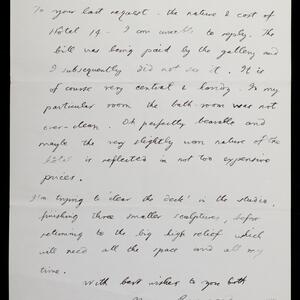 To your last request - the nature & cost of
Hotel 19 - I am unable to reply. The
bill was being paid by the gallery and
I subsequently did not see it. It is
of course very central & handy. In my
particular room the bath room was not
over-clean. Oh perfectly bearable and
maybe the very slightly worn nature of the
hotel is reflected in not too expensive
prices.
I'm trying to 'clear the deck' in the studio,
finishing three smaller sculptures, before
returning to the big high relief which
will need all the space and all my
time.
With best wishes to you both